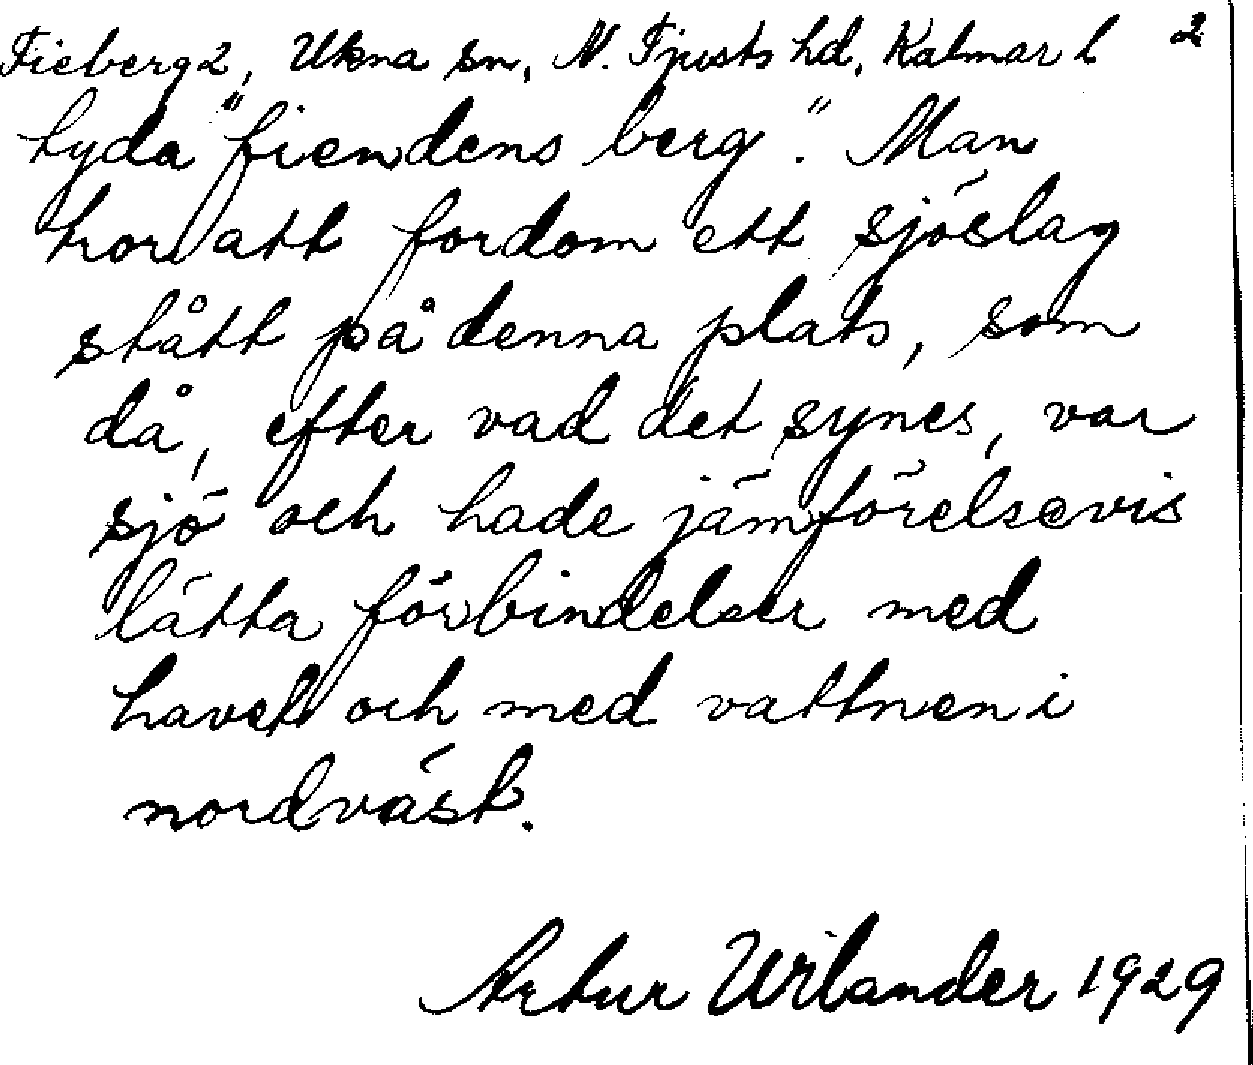 Fieberg 2, Ukna sn, N. Tjusts hd, Kalmar l 2
tyda "fiendens berg". Man
tror att fordom ett sjöslag
stått på denna plats, som
då, efter vad det synes, var
sjö och hade jämförelsevis
lätta förbindelser med
havet och med vattnen i
nordväst.
Artur Wilander 1929